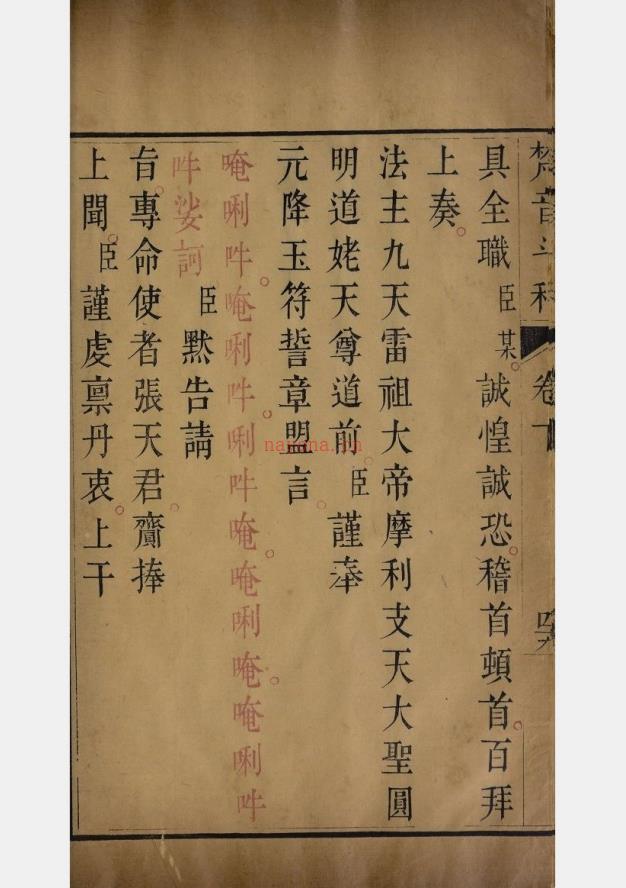 梵音斗科 卷下
具全職臣某。誠惶誠恐。稽首頓首。百拜
上奏。
法主九天雷祖大帝摩利支天大聖圓
明道姥天尊道前。臣謹奉
元降玉符誓章盟言。
唵唎吽。唵唎吽。唎吽唵。唵唎唵。唵唎吽
吽娑訶
臣默告請
旨。專命使者張天君。齎捧
上聞。臣謹虔稟丹衷。上干
nayona.cn